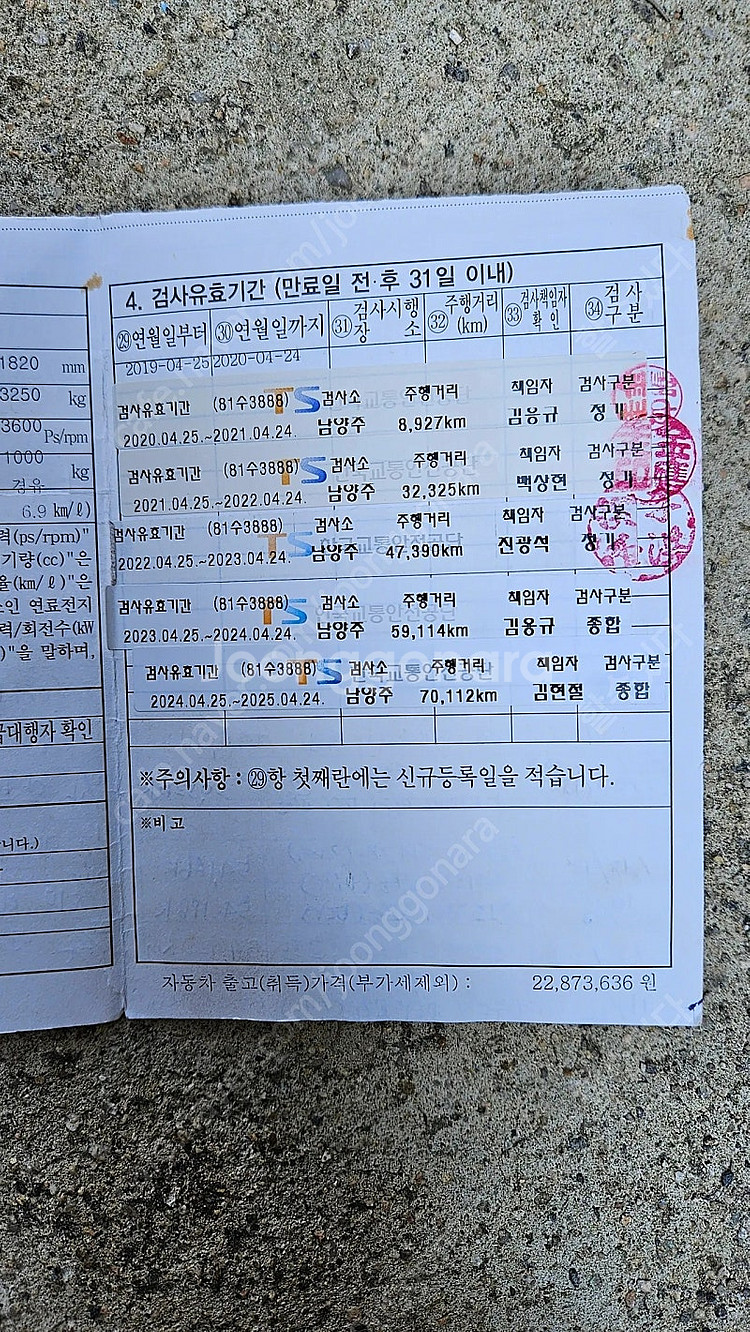 4. 검사유효기간 (만료일 전·후 31일 이내)
㉙연월일부터 ㉚연월일까지 ㉛검사시행장소 ㉜주행거리(km) ㉝검사책임자확인 ㉞검사구분
2019-04-25 2020-04-24
검사유효기간 (81수3888) TS 검사소 주행거리 책임자 검사구분
2020.04.25.~2021.04.24. 남양주 8,927km 김용규 정기
검사유효기간 (81수3888) TS 검사소 주행거리 책임자 검사구분
2021.04.25.~2022.04.24. 남양주 32,325km 백상현 정기
검사유효기간 (81수3888) TS 검사소 주행거리 책임자 검사구분
2022.04.25.~2023.04.24. 남양주 47,390km 진광석 정기
한국교통안전공단
검사유효기간 (81수3888) TS 검사소 주행거리 책임자 검사구분
2023.04.25.~2024.04.24. 남양주 59,114km 김용규 종합
검사유효기간 (81수3888) TS 검사소 주행거리 책임자 검사구분
2024.04.25.~2025.04.24. 남양주 70,112km 김현철 종합
※주의사항 : ㉙항 첫째란에는 신규등록일을 적습니다.
※비고
자동차 출고(취득)가격(부가세제외) : 22,873,636 원
1820 mm
3250 kg
3600 Ps/rpm
1000 kg
경유
6.9 km/ℓ)
력(ps/rpm)"
기량(cc)"은
율(km/ℓ)"은
소인 연료전지
력/회전수(kW
)"을 말하며,
급대행자 확인
니다.)
joonggonara